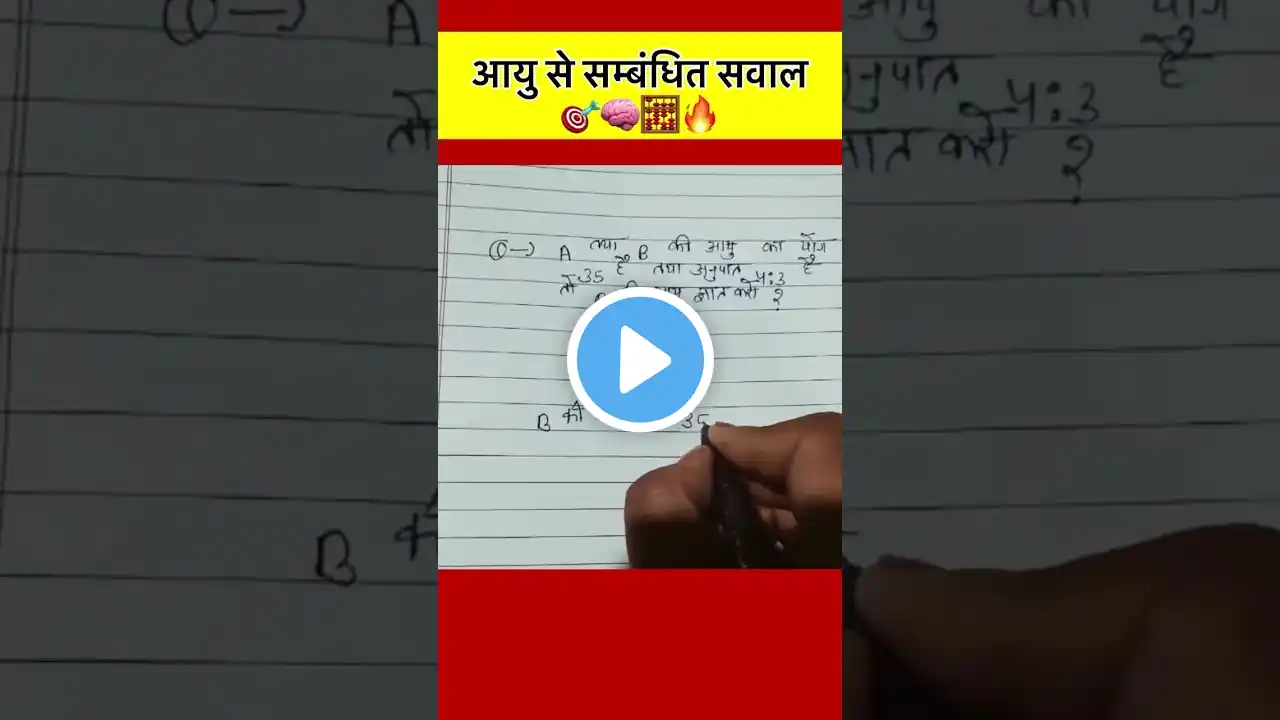 आयु से सम्बंधित सवाल
①→) A तथा B की आयु का योग
35 है तथा अनुपात 4:3 है
तो की ज्ञात करो ?
B की 35